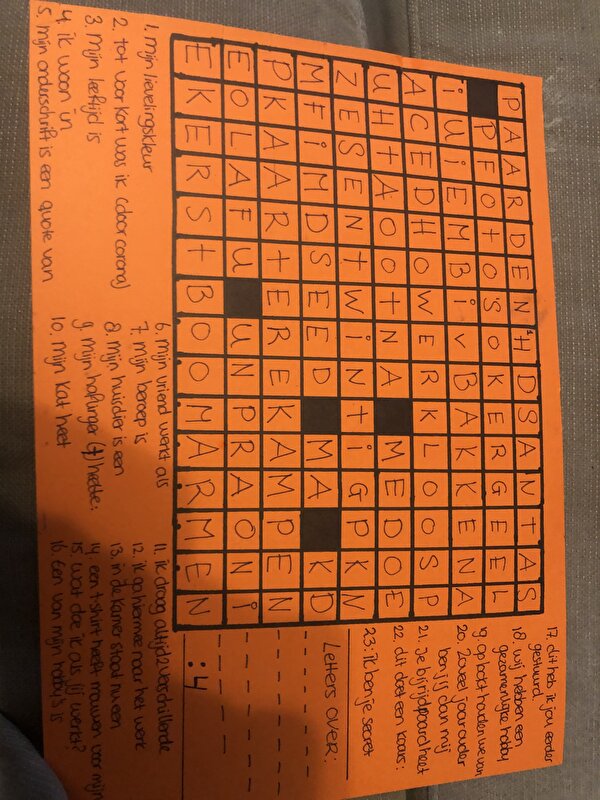 17. dit heb ik jou eerder
gestuurd
18. wij hebben een
gezamenlijke hobby
19. op
houden we van
20. Zoveel jaar ouder
ben jij dan mij
21. Je bijrijdpaard heet
22. dit doet een kaars:
23: ik ben je secret
PAARDENHDSANTAS
PFOtOSOKERGEEL
iUiEMBiVBAKKENA
ACEDHOWERKLOOSP
UHtAOOtNA MEDOE
ZESENtWiNtiGPKN
MtiMDSEED MA KD
PKAARtEREKAMPEN
EOLAFU UNPRAONi
EKERStBOOMARMEN
Letters over:
: 4
1. mijn lievelingskleur
2. tot voor kort was ik (door corona)
3. mijn leeftijd is
4. ik woon in
5. mijn onderschrift is een quote van
6. mijn vriend werkt als
7. mijn beroep is
8. mijn huisdier is een
9. mijn haflinger (†) heette:
10. mijn kat heet
11. ik draag altijd 2 verschillende
12. ik ga hiermee naar het werk
13. in de kamer staat nu een
14 een t-shirt heeft mouwen voor mijn
15 wat doe ik als jij wend?
16. Een van mijn hobby's is